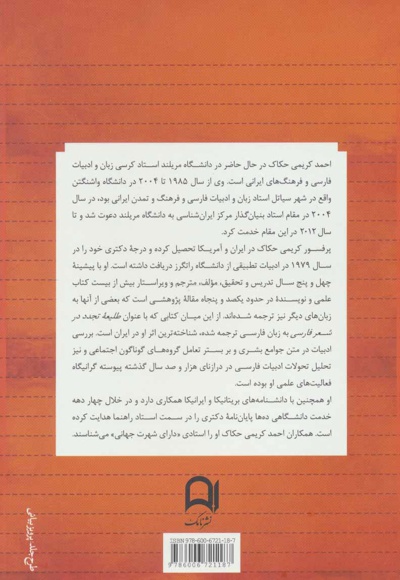 احمد کریمی حکاک در حال حاضر در دانشگاه مریلند استاد کرسی زبان و ادبیات
فارسی و فرهنگ‌های ایرانی است. وی از سال ۱۹۸۵ تا ۲۰۰۴ در دانشگاه واشنگتن
واقع در شهر سیاتل استاد زبان و ادبیات فارسی و فرهنگ و تمدن ایرانی بود، در سال
۲۰۰۴ در مقام استاد بنیان‌گذار مرکز ایران‌شناسی به دانشگاه مریلند دعوت شد و تا
سال ۲۰۱۲ در این مقام خدمت کرد.
پرفسور کریمی حکاک در ایران و آمریکا تحصیل کرده و درجهٔ دکتری خود را در
سال ۱۹۷۹ در ادبیات تطبیقی از دانشگاه راتگرز دریافت داشته است. او با پیشینهٔ
چهل و پنج سال تدریس و تحقیق، مؤلف، مترجم و ویراستار بیش از بیست کتاب
علمی و نویسندهٔ در حدود یکصد و پنجاه مقالهٔ پژوهشی است که بعضی از آنها به
زبان‌های دیگر نیز ترجمه شده‌اند. از این میان کتابی که با عنوان طلیعهٔ تجدد در
شعر فارسی به زبان فارسی ترجمه شده، شناخته‌ترین اثر او در ایران است. بررسی
ادبیات در متن جوامع بشری و بر بستر تعامل گروه‌های گوناگون اجتماعی و نیز
تحلیل تحولات ادبیات فارسی در درازنای هزار و صد سال گذشته پیوسته گرانیگاه
فعالیت‌های علمی او بوده است.
او همچنین با دانشنامه‌های بریتانیکا و ایرانیکا همکاری دارد و در خلال چهار دهه
خدمت دانشگاهی ده‌ها پایان‌نامهٔ دکتری را در سمت استاد راهنما هدایت کرده
است. همکاران احمد کریمی حکاک او را استادی «دارای شهرت جهانی» می‌شناسند.
نشر نامک
ISBN 978-600-6721-18-7
9786006721187
طرح جلد: پرویز بیانی